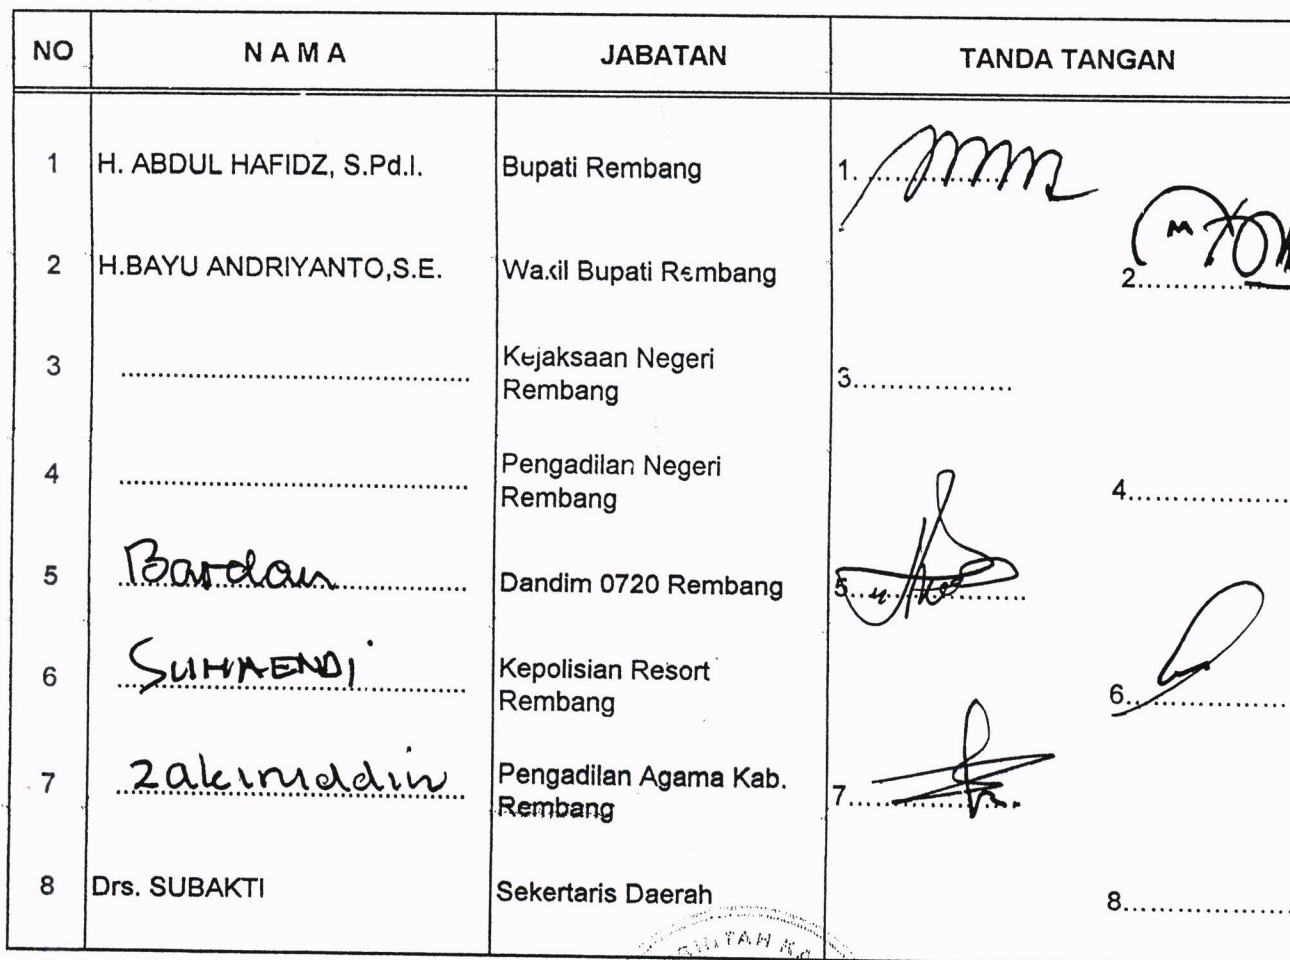 NO NAMA JABATAN TANDA TANGAN
1 H. ABDUL HAFIDZ, S.Pd.I. Bupati Rembang 1. ..............
2 H.BAYU ANDRIYANTO,S.E. Wakil Bupati Rembang 2..............
3 .............................. Kejaksaan Negeri
Rembang 3..................
4 .............................. Pengadilan Negeri
Rembang 4..................
5 Bardan Dandim 0720 Rembang 5..................
6 SUHAENDI Kepolisian Resort
Rembang 6..................
7 Zakiruddin Pengadilan Agama Kab.
Rembang 7..................
8 Drs. SUBAKTI Sekertaris Daerah 8..................